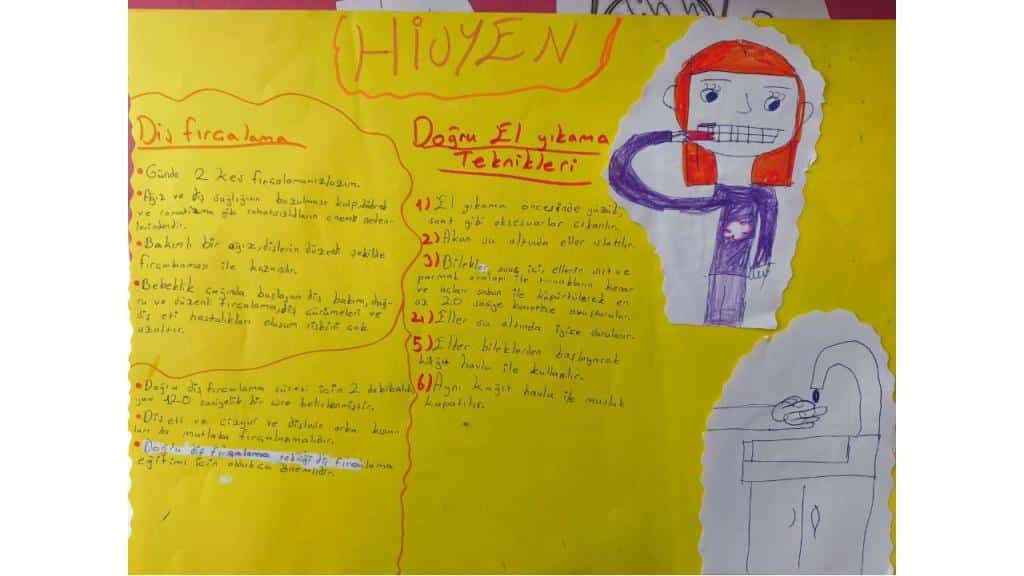 HİJYEN
Diş fırçalama
• Günde 2 kes fırçalamanızlazım.
• Ağız ve diş sağlığının bozulması kalp,
ve romatizma gibi rahatsızlıkların önemli neden-
lerindendir.
• Bakımlı bir ağız, dişlerin düzenli şekilde
fırçalanması ile kazanılır.
• Bebeklik çağında başlayan diş bakımı, doğ-
ru ve düzenli fırçalama, diş çürümeleri ve
diş eti hastalıkları oluşum riskini çok
azaltır.
• Doğru diş fırçalama süresi için 2 dakikalık
yani 120 saniyelik bir süre belirlenmiştir.
• Diş eti ve çizgisi ve dişlerin arka kısım-
ları da mutlaka fırçalanmalıdır.
• Doğru diş fırçalama tekniği diş fırçalama
eğitimi için oldukça önemlidir.
Doğru El yıkama
Teknikleri
1) El yıkama öncesinde yüzük,
saat gibi aksesuarlar çıkarılır.
2) Akan su altında eller ıslatılır.
3) Bilekler, avuç içi, ellerin üstü ve
parmak araları ile tırnakların kenar
ve uçları sabun ile köpürtülerek en
az 20 saniye kuvvetle ovuşturulur.
4) Eller su altında iyice durulanır.
5) Eller bileklerden başlayarak
kağıt havlu ile kurulanır.
6) Aynı kağıt havlu ile musluk
kapatılır.